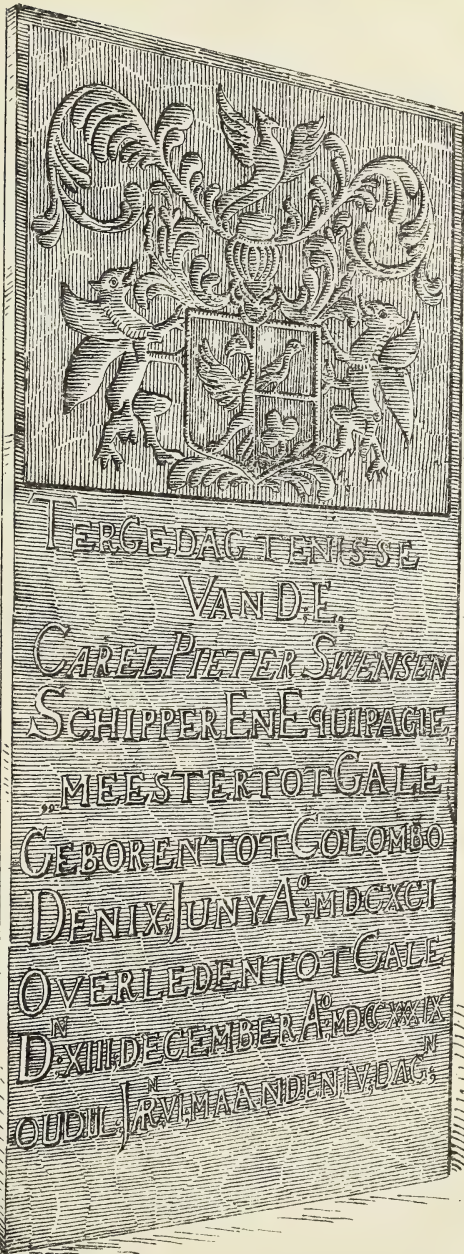 TERGEDAGTENISSE
VAN D:E:
CAREL PIETER SWENSEN
SCHIPPER EN EQUIPAGIE,
„MEESTER TOT GALE
GEBOREN TOT COLOMBO
DEN IX JUNY Aº; MDCXCI
OVERLEDEN TOT GALE
Dᴺ: XIII: DECEMBER Aº: MDCXXXIX
OUD IIL: JᴺR: VI, MAANDEN, IV, DAGᴺ;